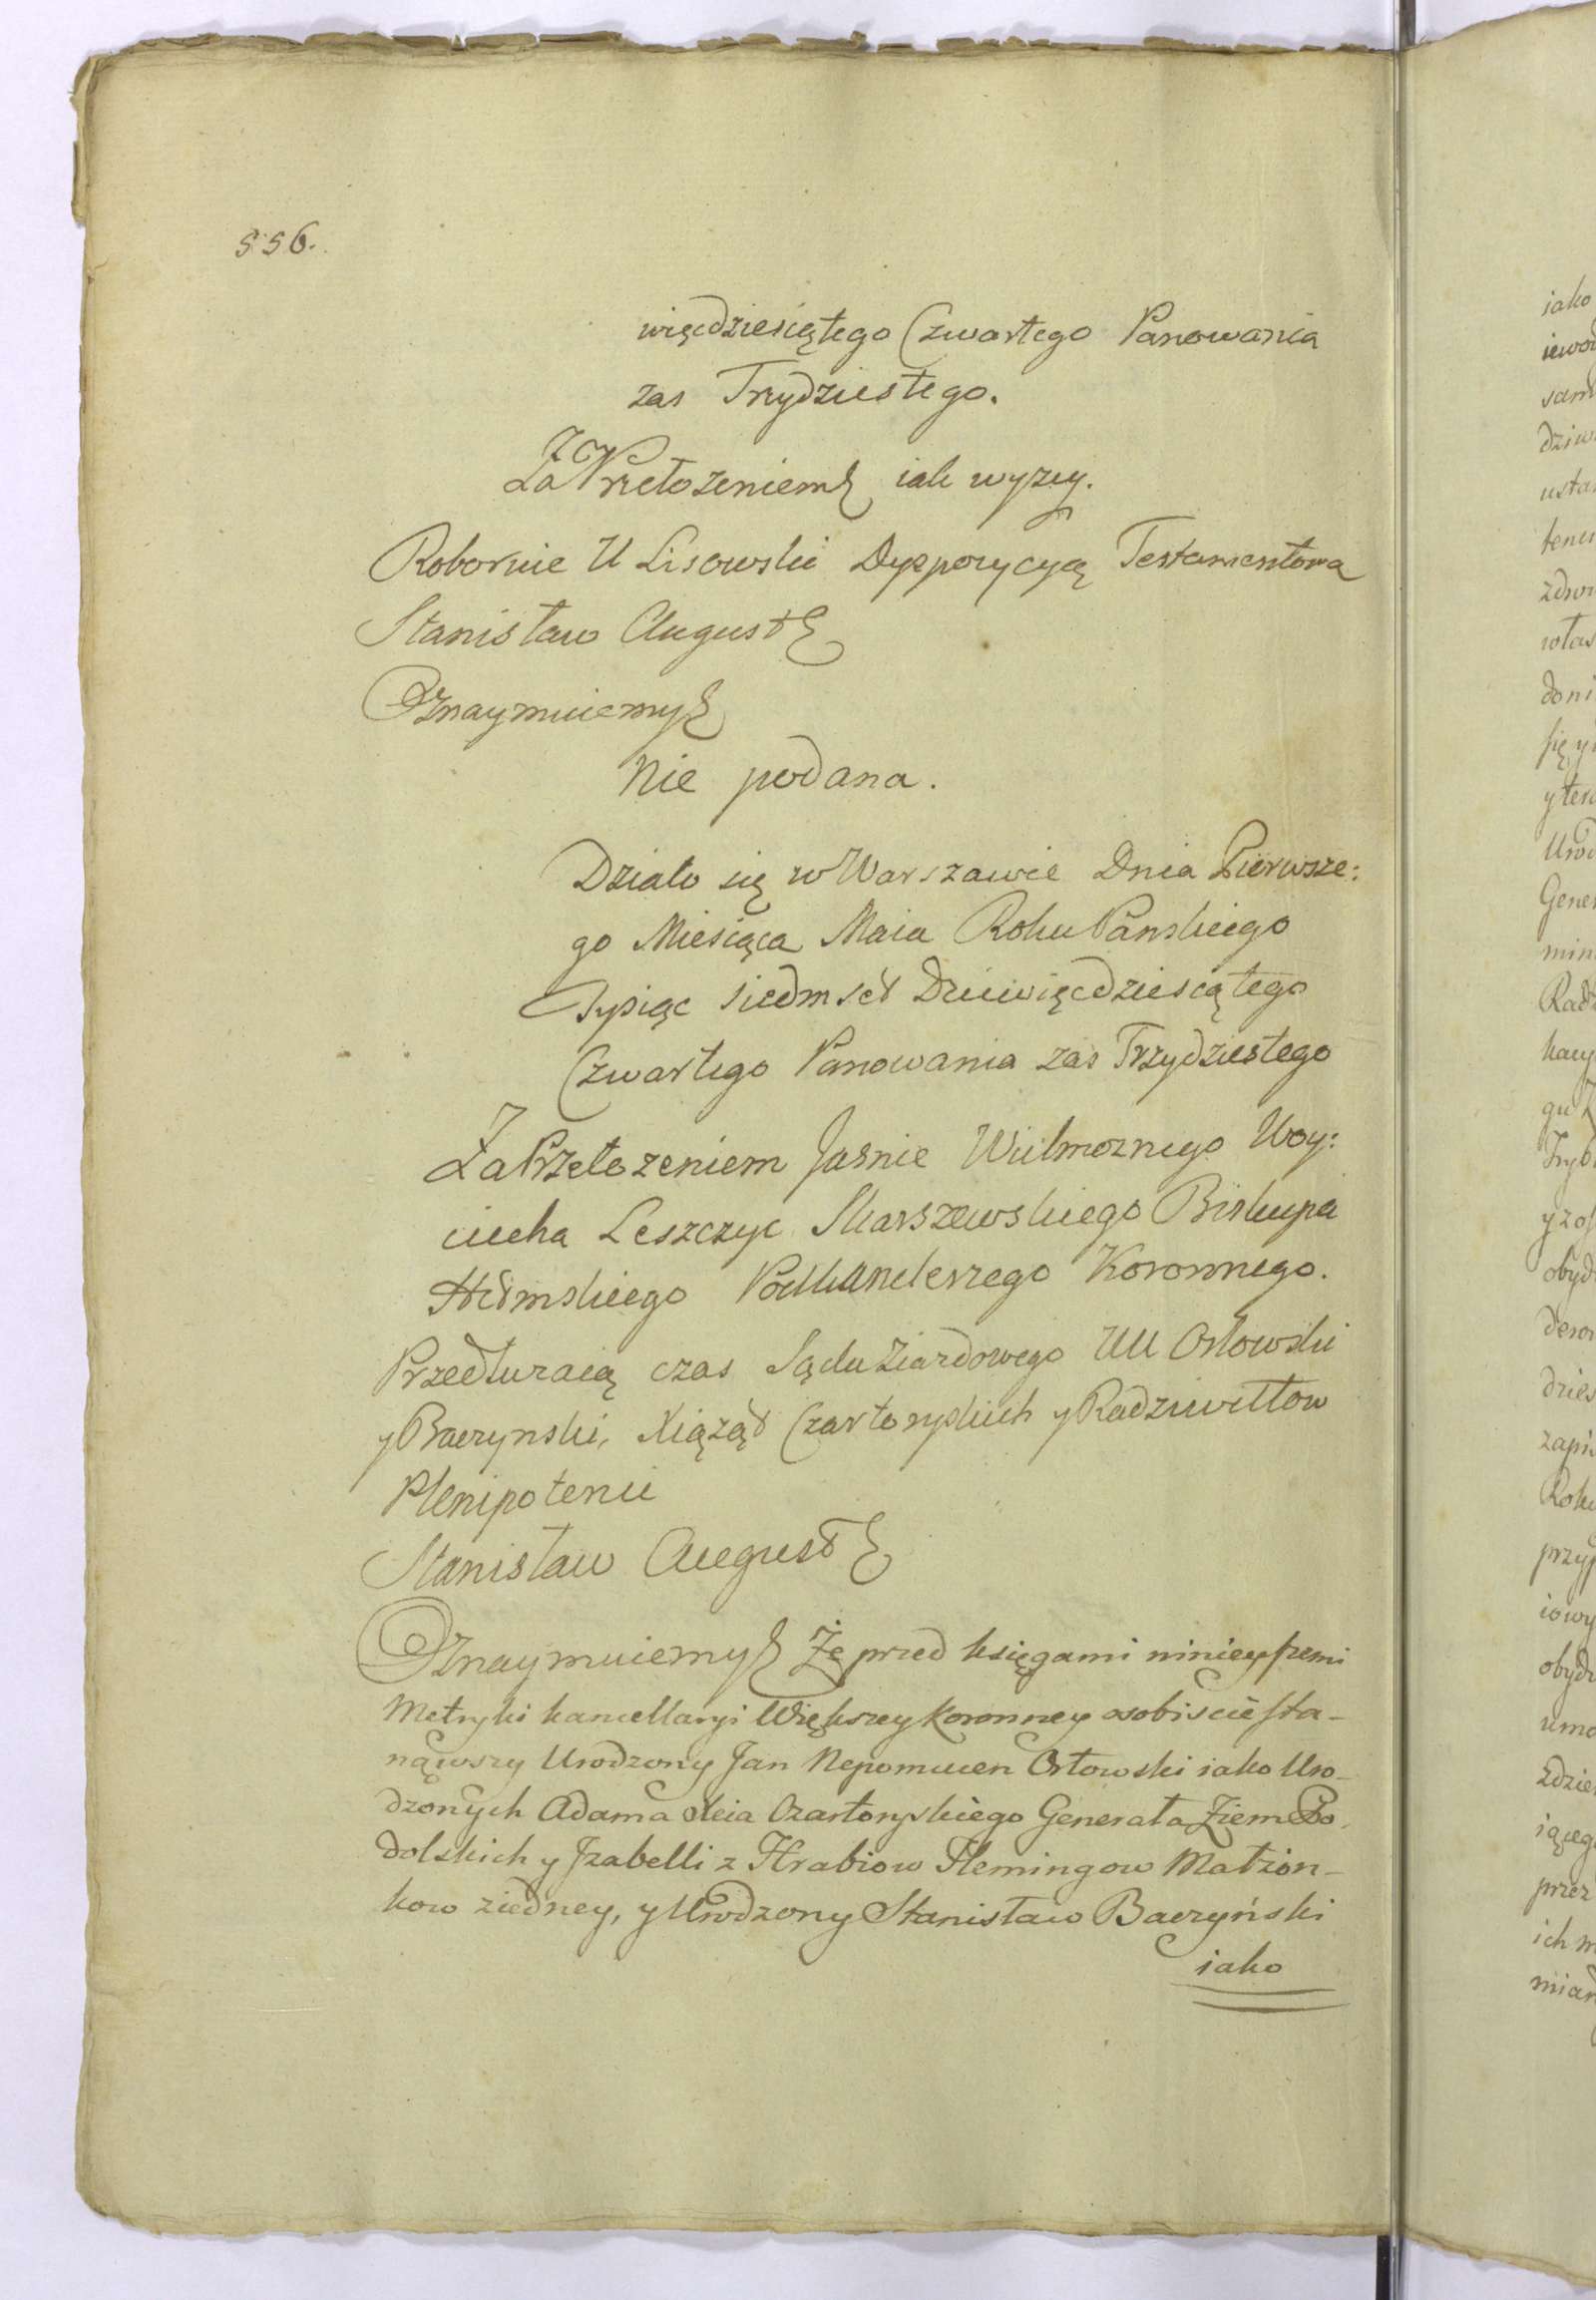 556.
więcdziesiątego Czwartego Panowania
zas Trzydziestego.
Za Przełożeniem iak wyzey.
Roboruie U Lisowski Dyspozycyą Testamentowa
Stanisław August
Oznaymuiemy
Nie podana.
Działo się w Warszawie Dnia Pierwsze:
go Miesiąca Maia Roku Pańskiego
Tysiąc siedmset Dziewięcdziesiątego
Czwartego Panowania zas Trzydziestego
Za Przełozeniem Jasnie Wielmoznego Woy:
ciecha Leszczyc Skarszewskiego Biskupa
Chełmskiego Podkanclerzego Koronnego.
Przedłuzaią czas Sądu Ziazdowego UU Orłowski
y Baczynski, Xiążąt Czartoryskich y Radziwiłłow
Plenipotenci
Stanisław August
Oznaymuiemy Że przed księgami ninieyszemi
Metryki kancellaryi Większey Koronney osobiscie sta-
nąwszy Urodzony Jan Nepomucen Orłowski iako Uro-
dzonych Adama Xcia Czartoryskiego Generała Ziem Po-
dolskich y Jzabelli z Hrabiow Flemingow Małżon-
kow ziedney, y Urodzony Stanisław Baczyński
iako
iako
ich m